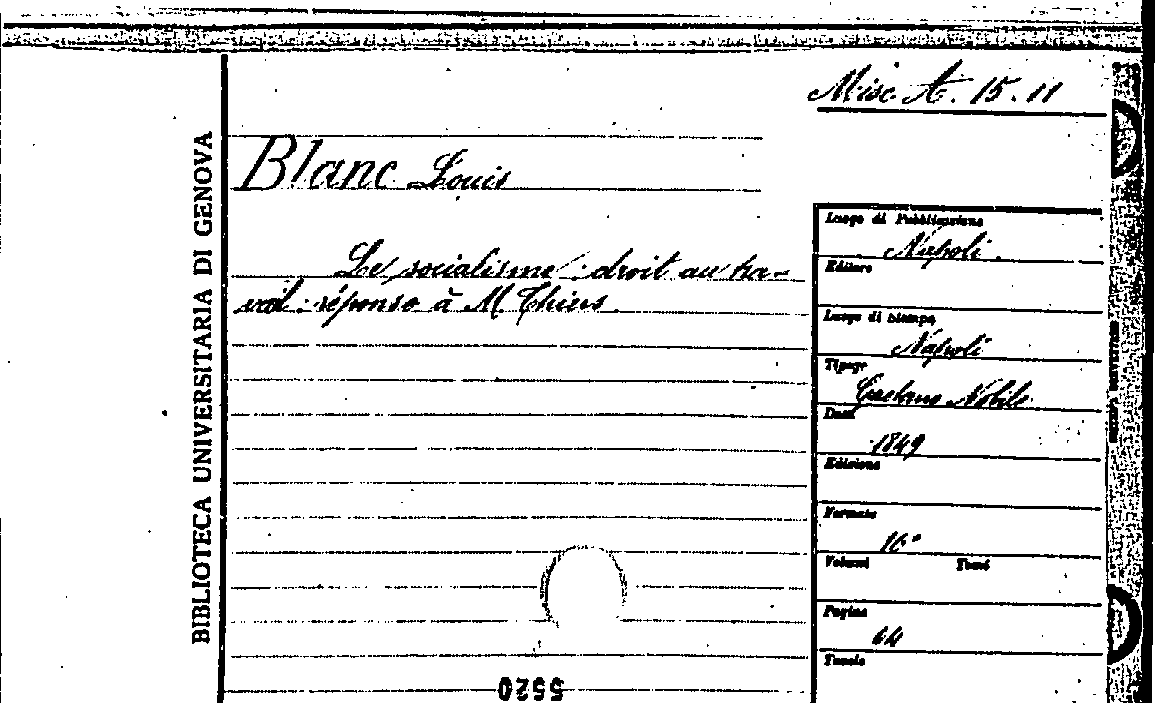 Misc A. 15. 11
BIBLIOTECA UNIVERSITARIA DI GENOVA
Blanc Louis
Le socialisme : droit au tra-
vail : réponse à M. Thiers.
Luogo di Pubblicazione
Napoli.
Editore
Luogo di Stampa
Napoli
Tipogr
Gaetano Nobile
Data
1849
Edizione
Formato
16°
Volumi Tomi
Pagine
64
Tavole
5520